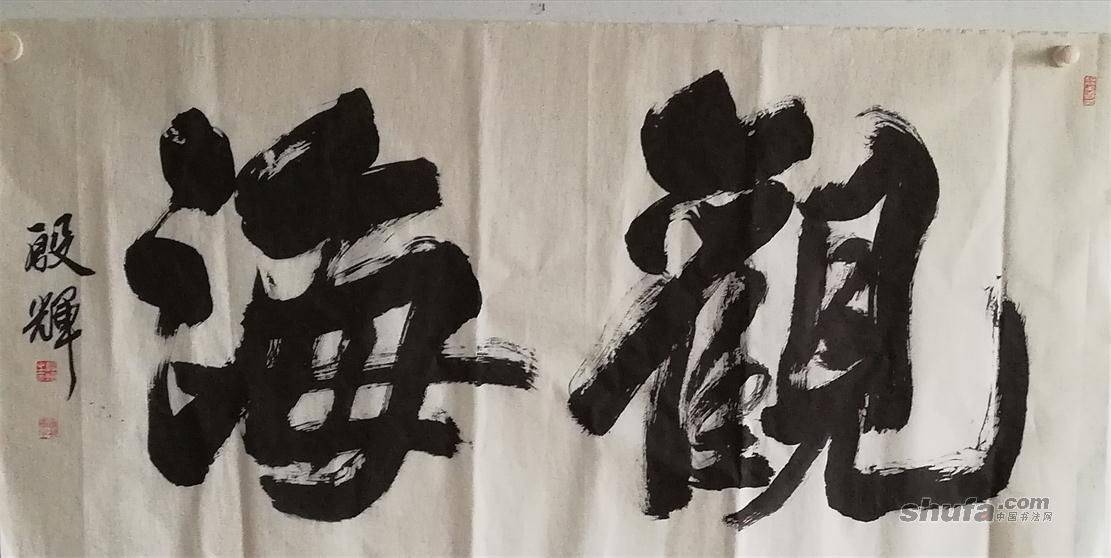 觀海
殷輝
shufa.com
中国书法网